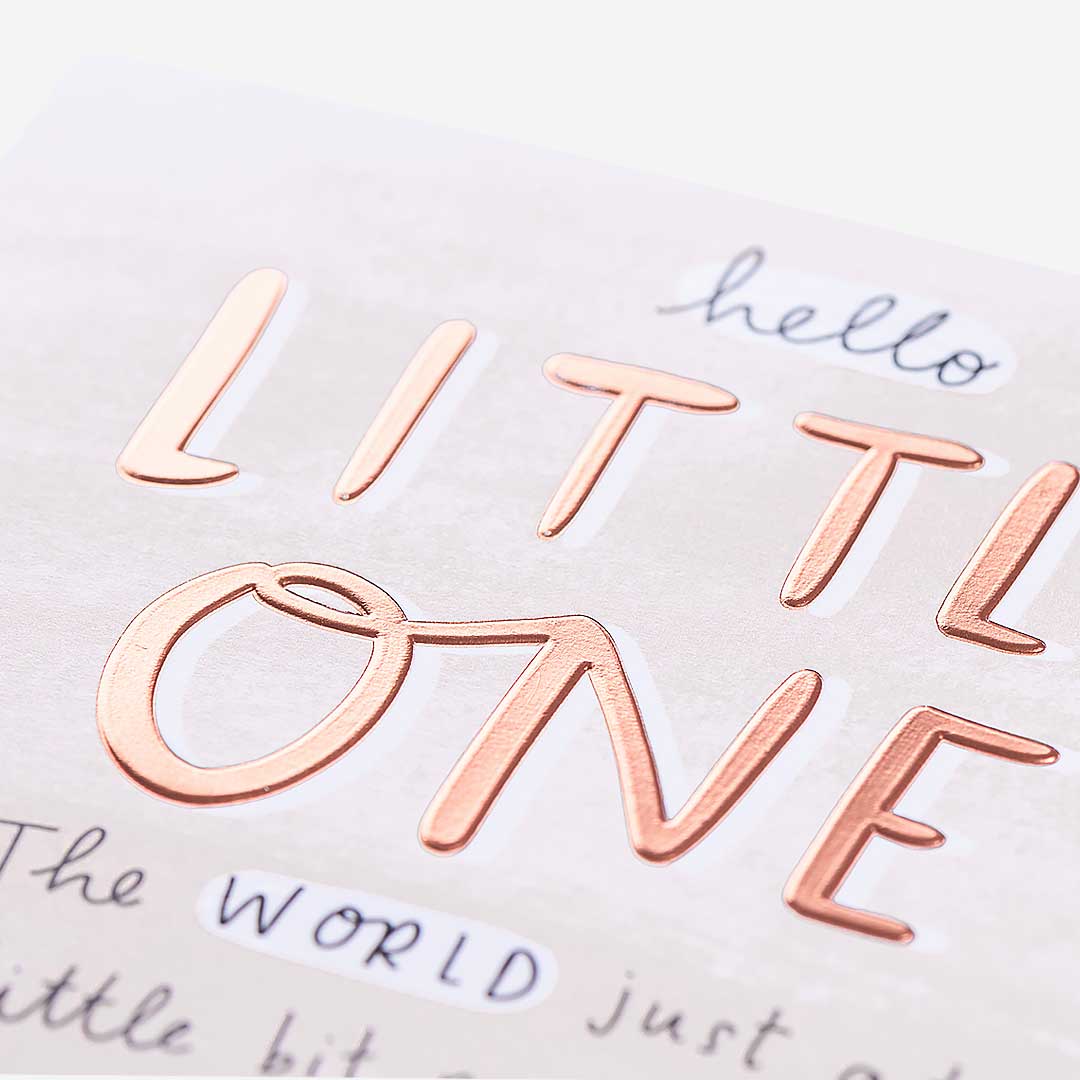 hello
LITTL
ONE
The WORLD just
ittle bit